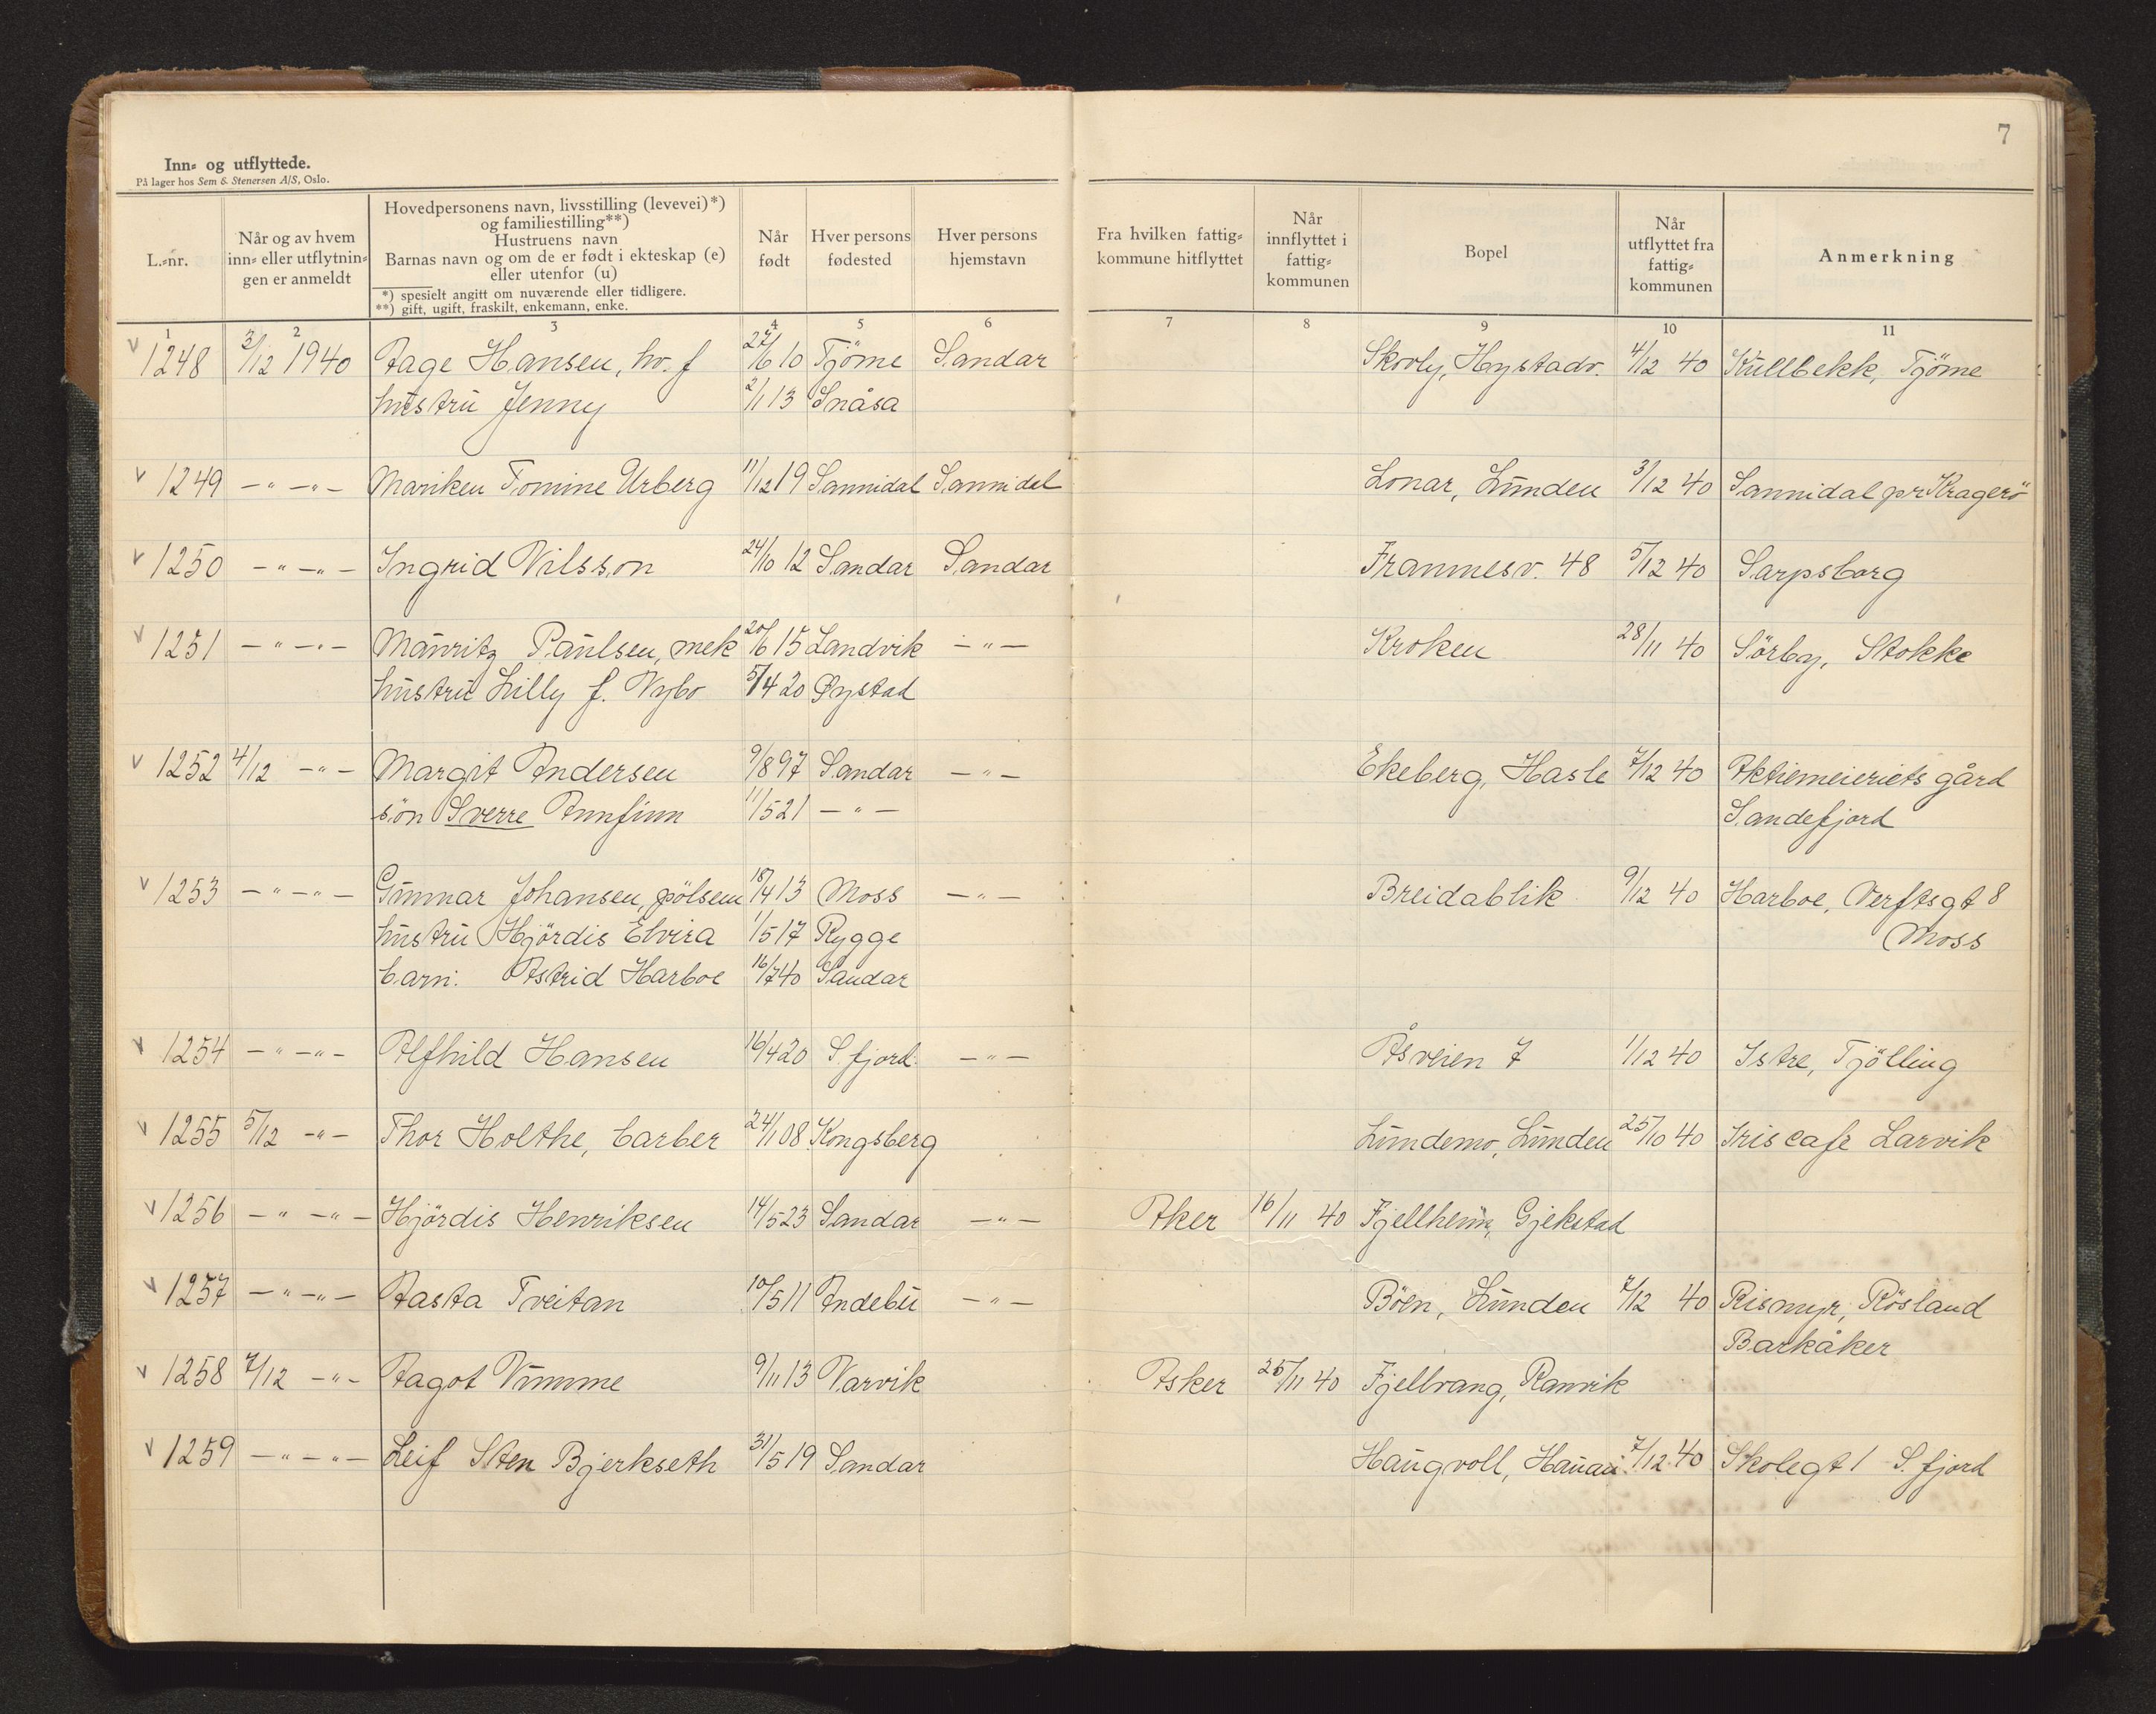 7
Inn- og utflyttede.
På lager hos Sem & Stenersen A/S, Oslo.
L.-nr. | Når og av hvem inn- eller utflytningen er anmeldt | Hovedpersonens navn, livsstilling (levevei)*) og familiestilling**) Hustruens navn Barnas navn og om de er født i ekteskap (e) eller utenfor (u) *) spesielt angitt om nuværende eller tidligere. **) gift, ugift, fraskilt, enkemann, enke. | Når født | Hver persons fødested | Hver persons hjemstavn | Fra hvilken fattigkommune hitflyttet | Når innflyttet i fattigkommunen | Bopel | Når utflyttet fra fattigkommunen | Anmerkning
1 2 3 4 5 6 7 8 9 10 11
v 1248 3/12 1940 Aage Hansen, hv. f 27/6 10 Tjöme Sandar Skovly, Hystadv. 4/12 40 Kullbekk, Tjöme
hustru Jenny 2/1 13 Snåsa
v 1249 -"- -"- Mariken Tomine Urberg 11/12 19 Sannidal Sannidal Lonar, Lunden 3/12 40 Sannidal pr Kragerö
v 1250 -"- -"- Ingrid Nilsson 24/10 12 Sandar Sandar Framnesv. 48 5/12 40 Sarpsborg
v 1251 -"- -"- Mauritz Paulsen, mek 20/6 15 Landvik -"- Kroken 28/11 40 Sörby, Stokke
hustru Lilly f. Nybo 5/4 20 Øystad
v 1252 4/12 -"- Margit Andersen 9/8 97 Sandar -"- Ekeberg, Hasle 7/12 40 Aktiemeieriets gård
sön Sverre Arnfinn 11/5 21 -"- Sandefjord
v 1253 -"- -"- Gunnar Johansen, pölsem 18/4 13 Moss -"- Breidablik 9/12 40 Harboe, Verftsgt 8
hustru Hjördis Elvira 1/5 17 Rygge Moss
barn: Astrid Harboe 16/7 40 Sandar
v 1254 -"- -"- Alfhild Hansen 16/4 20 S. fjord. -"- Åsveien 7 1/12 40 Istre, Tjölling
v 1255 5/12 -"- Thor Holthe, barber 24/1 08 Kongsberg Lundemo, Lunden 25/10 40 Iris cafe Larvik
v 1256 -"- -"- Hjördis Henriksen 14/5 23 Sandar -"- Aker 16/11 40 Fjellheim, Gjekstad
v 1257 -"- -"- Aasta Tveitan 10/5 11 Andebu -"- Böen, Lunden 7/12 40 Rismyr, Råsland
Barkåker
v 1258 7/12 -"- Aagot Vimme 9/11 13 Narvik Asker 25/11 40 Fjellvang, Ranvik
v 1259 -"- -"- Leif Sten Bjerkseth 31/5 19 Sandar Haugvoll, Hauan 7/12 40 Skolegt 1 S. fjord